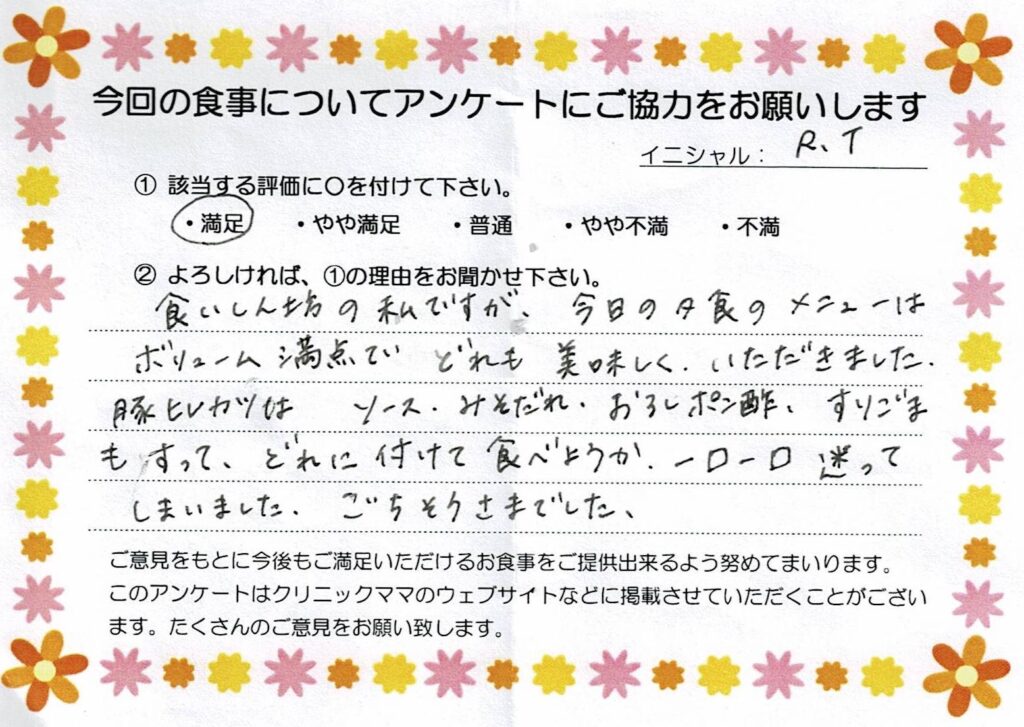 今回の食事についてアンケートにご協力をお願いします
イニシャル： R、T
① 該当する評価に〇を付けて下さい。
・満足 ・やや満足 ・普通 ・やや不満 ・不満
② よろしければ、①の理由をお聞かせ下さい。
食いしん坊の私ですが、今日の夕食のメニューは
ボリューム満点でい どれも美味しく、いただきました.
豚ヒレカツは ソース、みそだれ、おろしポン酢、すりごま
もすって、どれに付けて食べようか、一口一口迷って
しまいました、ごちそうさまでした、
ご意見をもとに今後もご満足いただけるお食事をご提供出来るよう努めてまいります。
このアンケートはクリニックママのウェブサイトなどに掲載させていただくことがござい
ます。たくさんのご意見をお願い致します。